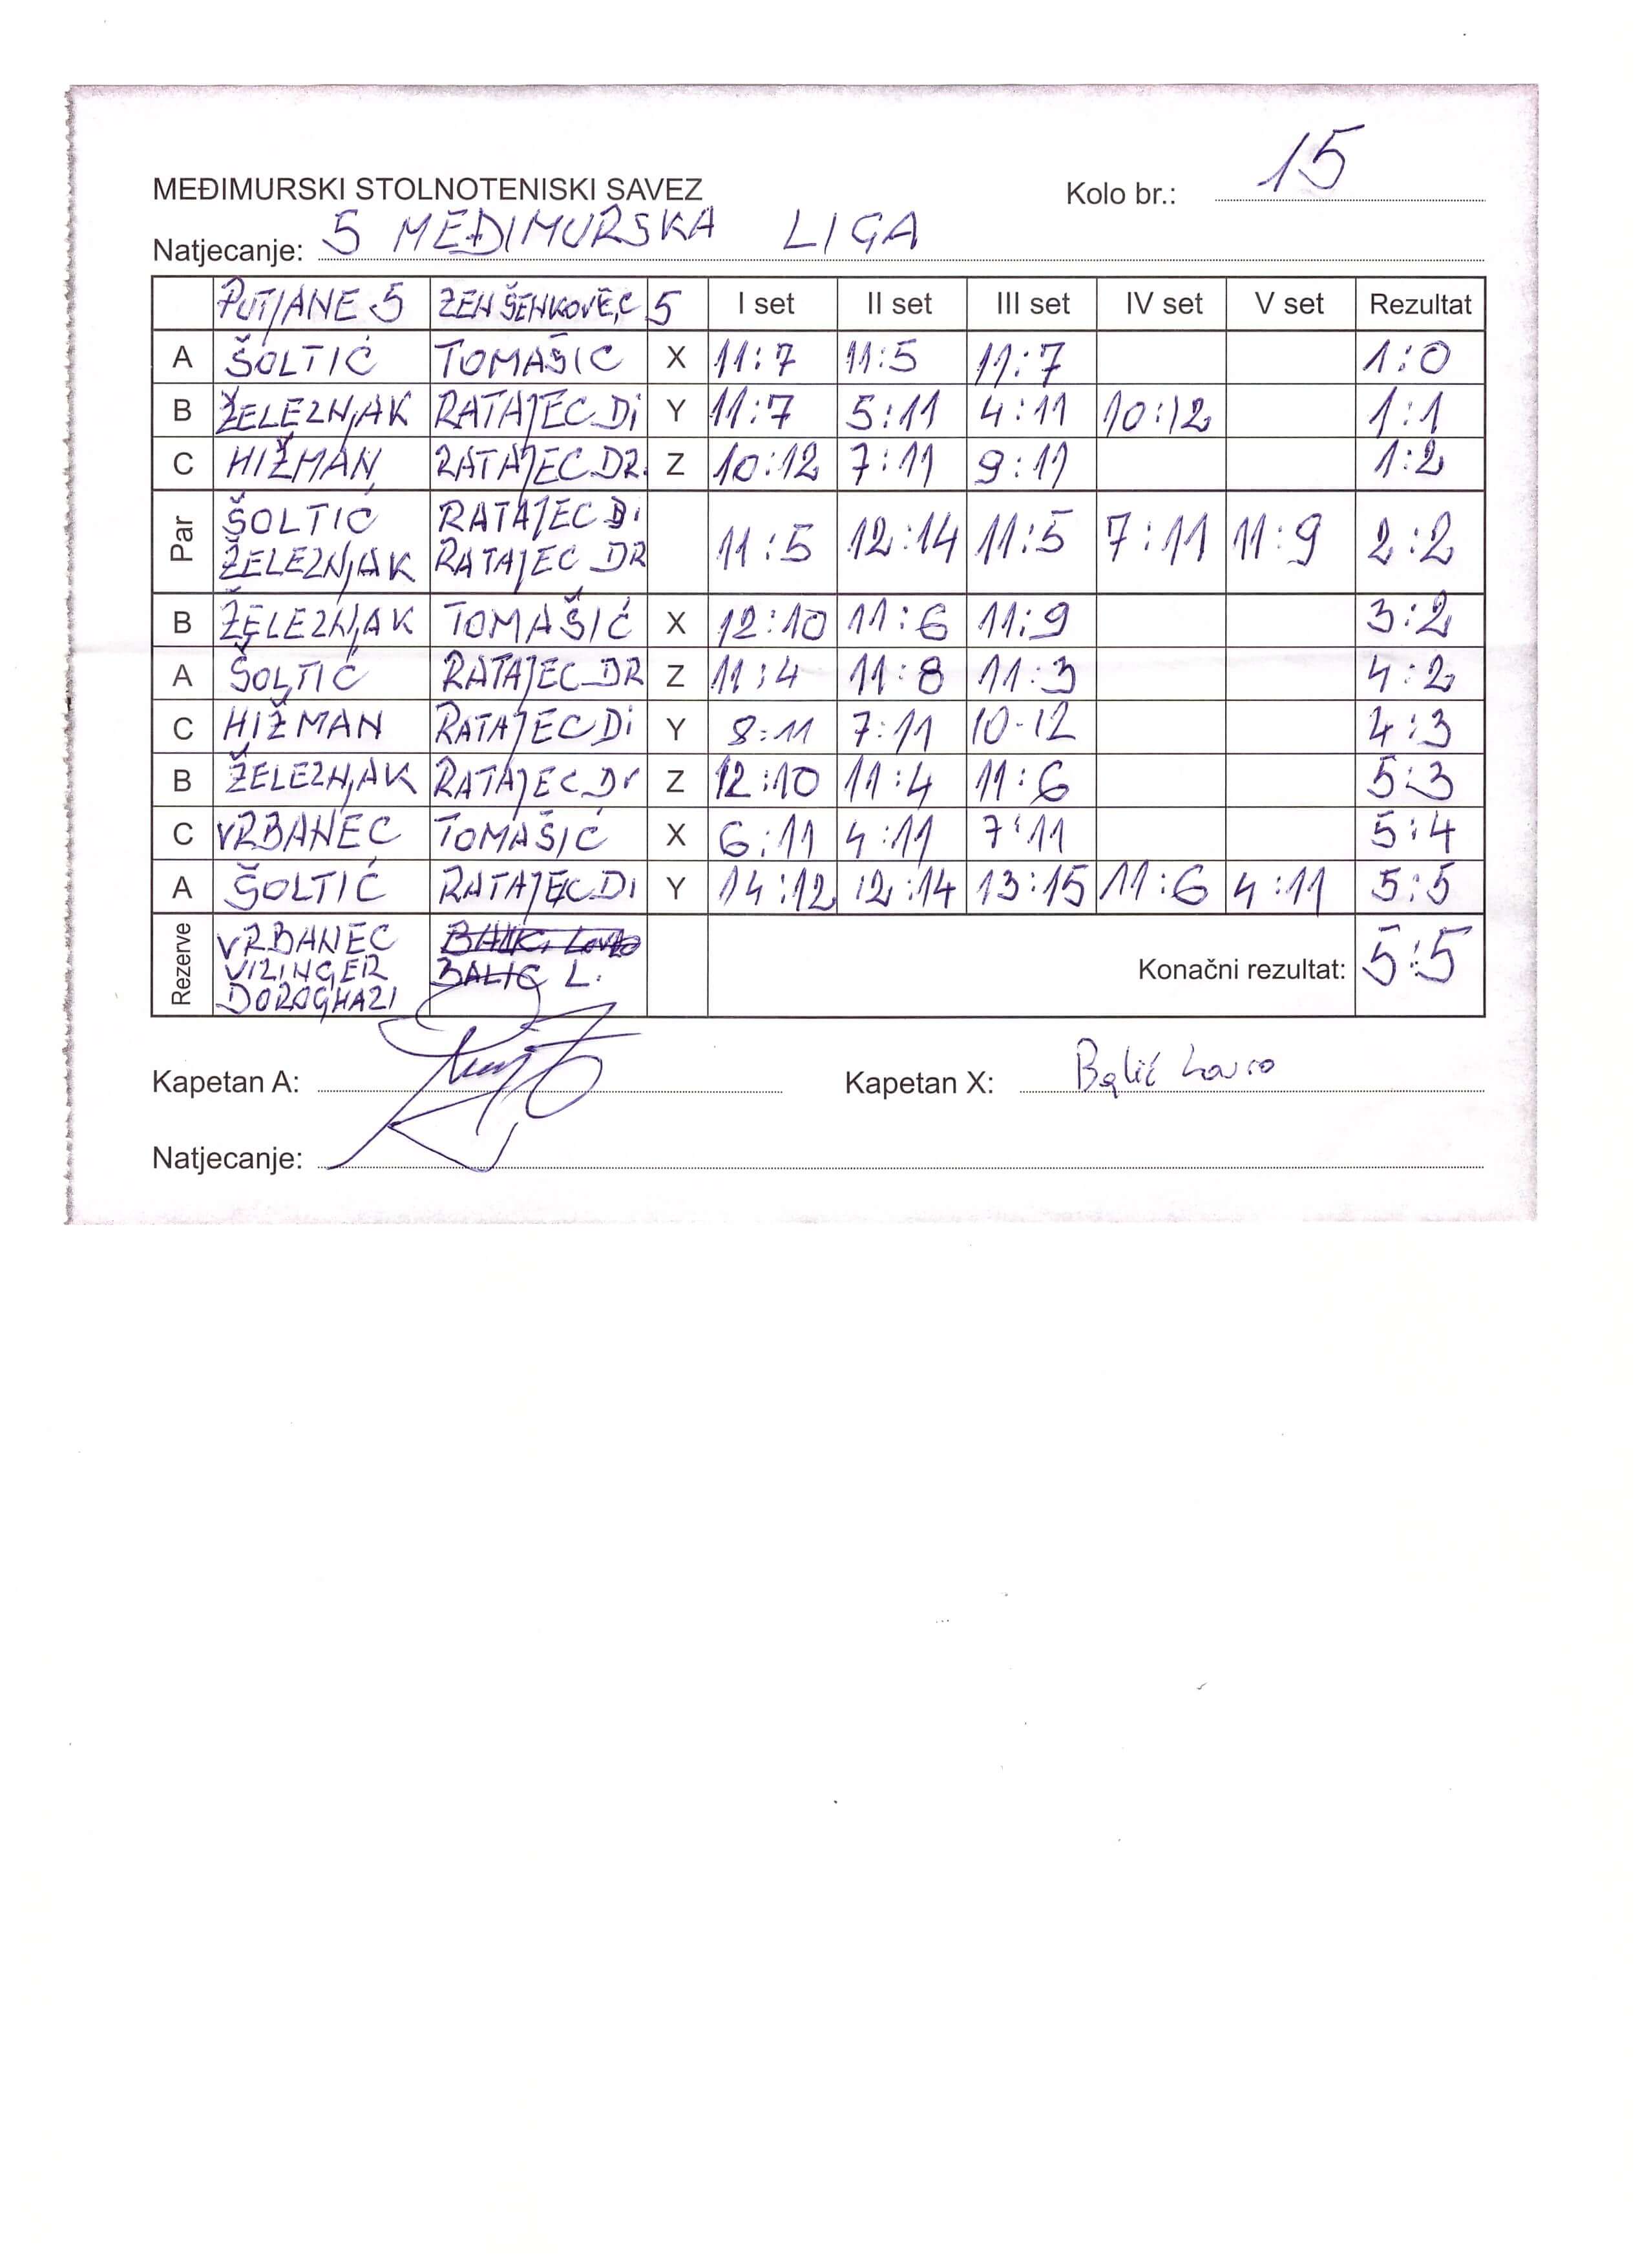 MEĐIMURSKI STOLNOTENISKI SAVEZ
Kolo br.: 15
Natjecanje: 5 MEĐIMURSKA LIGA
PUTJANE 5 ZEN ŠENKOVEC 5 I set II set III set IV set V set Rezultat
A ŠOLTIĆ TOMAŠIĆ X 11:7 11:5 11:7 1:0
B ŽELEZNJAK RATAJEC Di Y 11:7 5:11 4:11 10:12 1:1
C HIŽMAN RATAJEC DR. Z 10:12 7:11 9:11 1:2
Par ŠOLTIĆ RATAJEC Di
ŽELEZNJAK RATAJEC DR 11:5 12:14 11:5 7:11 11:9 2:2
B ŽELEZNJAK TOMAŠIĆ X 12:10 11:6 11:9 3:2
A ŠOLTIĆ RATAJEC DR Z 11:4 11:8 11:3 4:2
C HIŽMAN RATAJEC Di Y 8:11 7:11 10-12 4:3
B ŽELEZNJAK RATAJEC Dr Z 12:10 11:4 11:6 5:3
C VRBANEC TOMAŠIĆ X 6:11 4:11 7:11 5:4
A ŠOLTIĆ RATAJEC Di Y 14:12 12:14 13:15 11:6 4:11 5:5
Rezerve VRBANEC
VIZINGER BALIĆ L.
DOROGHAZI
Konačni rezultat: 5:5
Kapetan A: Kapetan X: Balić Lovro
Natjecanje: